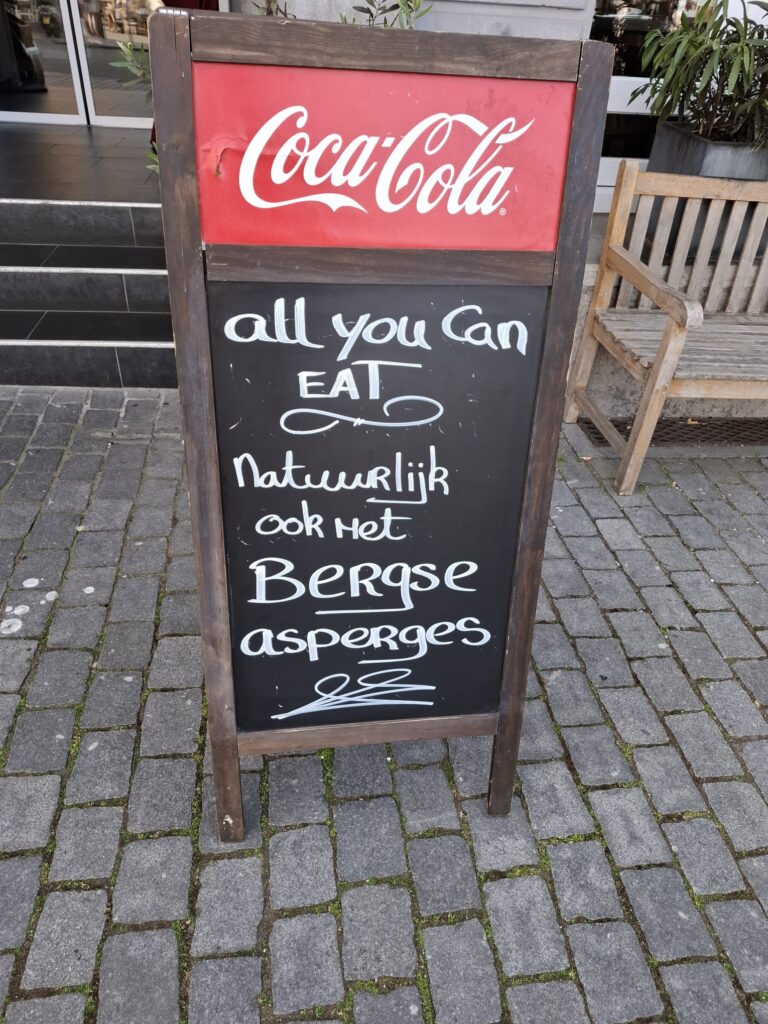 Coca-Cola
all you can
EAT
Natuurlijk
ook met
Bergse
asperges